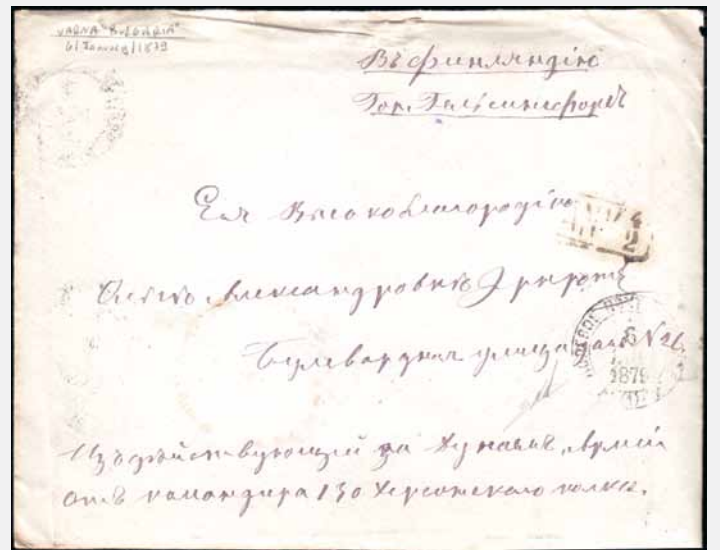 VARNA "BULGARIA"
6/ /1879
Въ Финляндію
Гор. Гельсингфорсъ
Ея Высокоблагородію
Александровнѣ
Бульварная улица домъ N 26
6
1879
Изъ дѣйствующей за Дунаемъ Арміи
отъ командира 130 Херсонскаго полка.